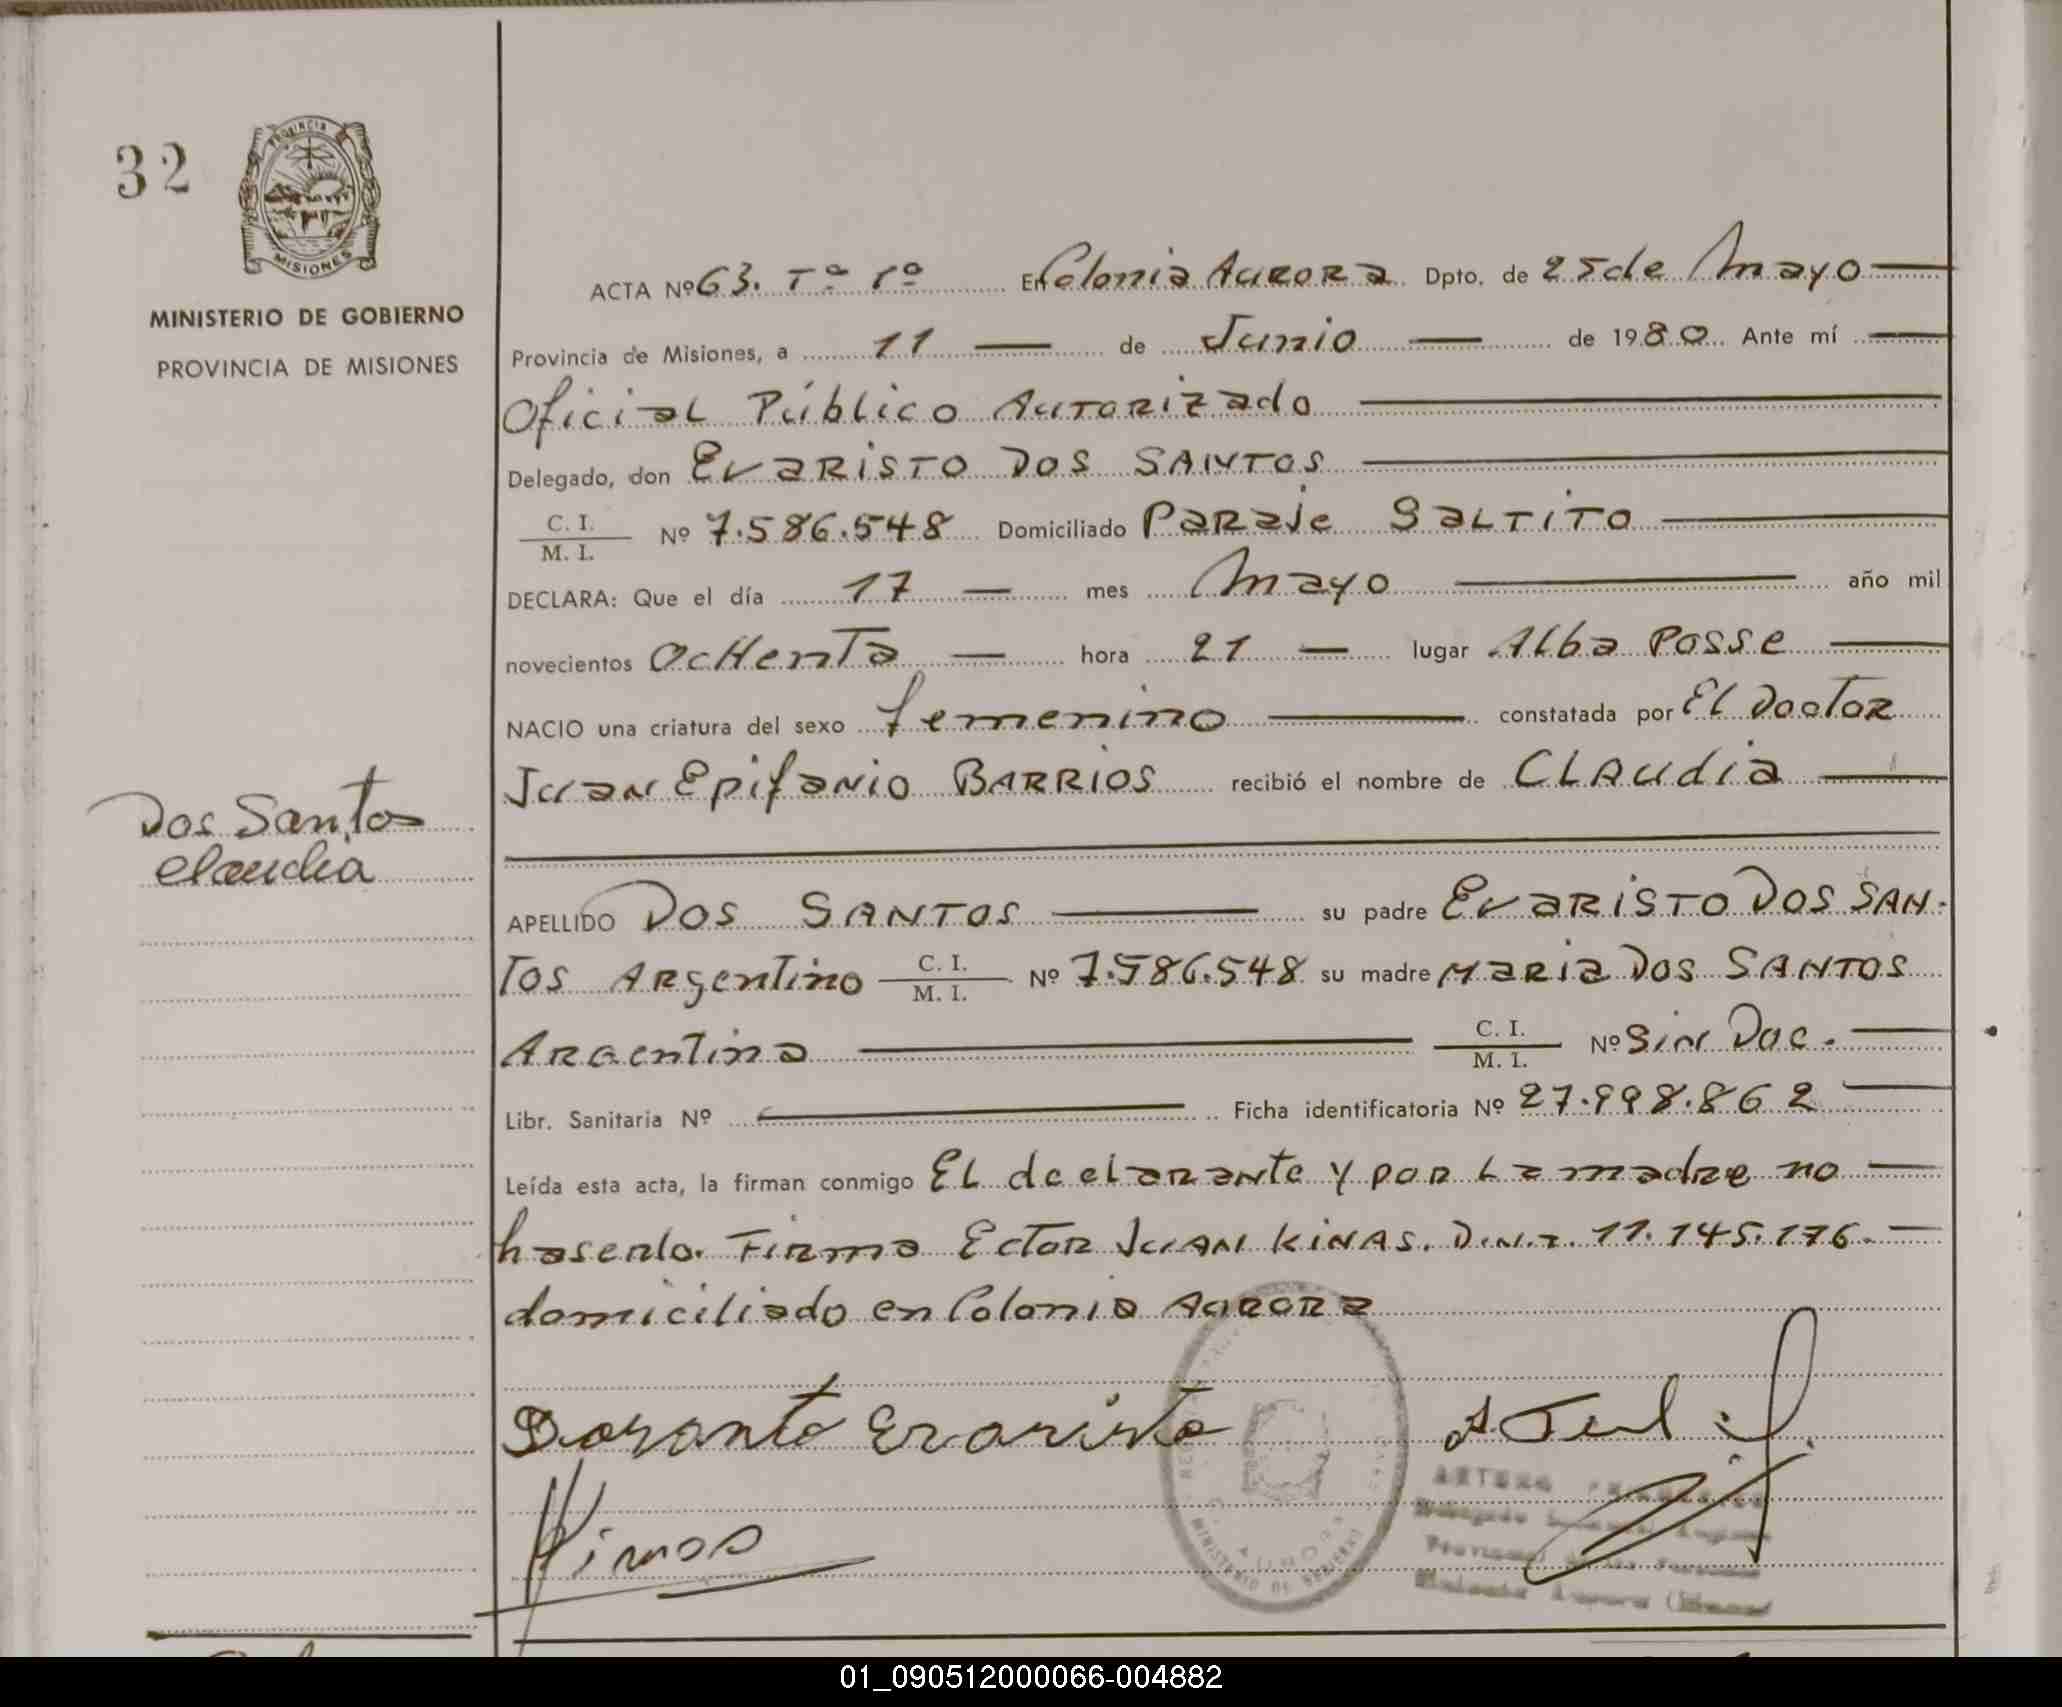 32
PROVINCIA
MISIONES
MINISTERIO DE GOBIERNO
PROVINCIA DE MISIONES
Dos Santos
Claudia
ACTA Nº 63. Tº 1º En Colonia Aurora Dpto. de 25 de Mayo
Provincia de Misiones, a 11 de Junio de 1980. Ante mí
Oficial Público Autorizado
Delegado, don Evaristo Dos Santos
C. I. / M. I. Nº 7.586.548 Domiciliado Paraje Saltito
DECLARA: Que el día 17 mes Mayo año mil
novecientos ocHenta hora 21 lugar Alba Posse
NACIO una criatura del sexo femenino constatada por El Doctor
Juan Epifanio BARRIOS recibió el nombre de CLAudia
APELLIDO DOS SANTOS su padre Evaristo DOS SAN-
TOS Argentino C. I. / M. I. Nº 7.586.548 su madre Maria Dos SANTOS
Argentina C. I. / M. I. Nº Sin Doc.
Libr. Sanitaria Nº Ficha identificatoria Nº 27.998.862
Leída esta acta, la firman conmigo El declarante y por La madre no
haserlo. Firma Ector Juan Kinas. D.N.I. 11.145.176.
domiciliado en Colonia Aurora
Dosanto Evaristo
Kinas
MINISTERIO DE GOBIERNO
01_090512000066-004882